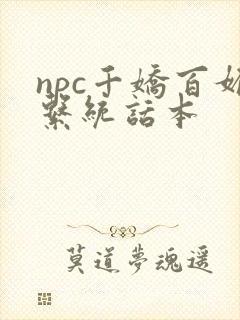 npc千嬌百媚
繫統話本
莫道夢魂遥